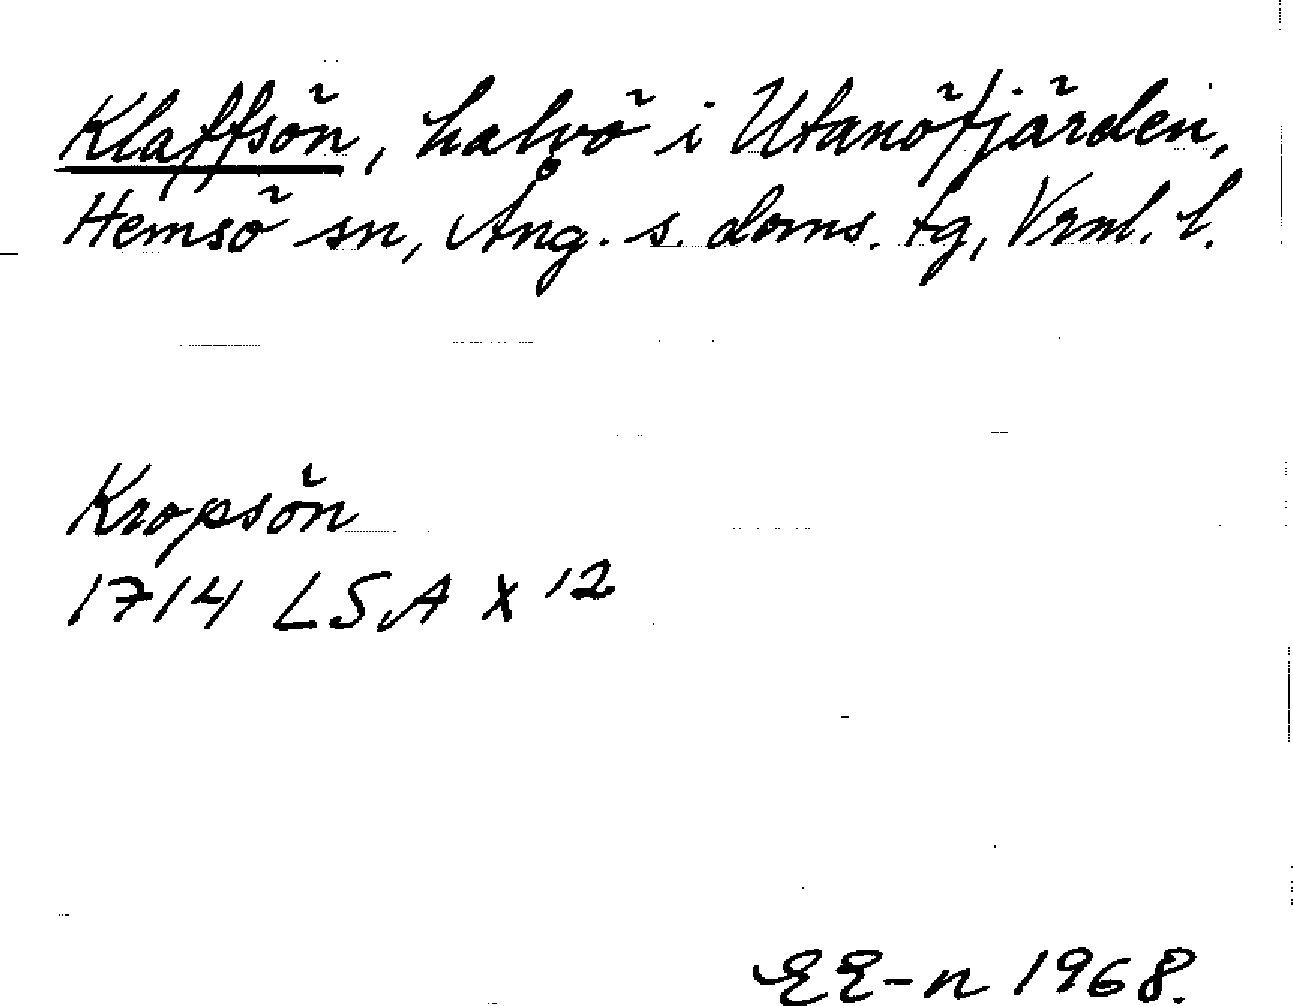 Klaffsön, halvö i Utanöfjärden,
Hemsö sn, Ång. s. doms. tg, Vrnl. l.
Kropsön
1714 LSA X 12
EE-n 1968.